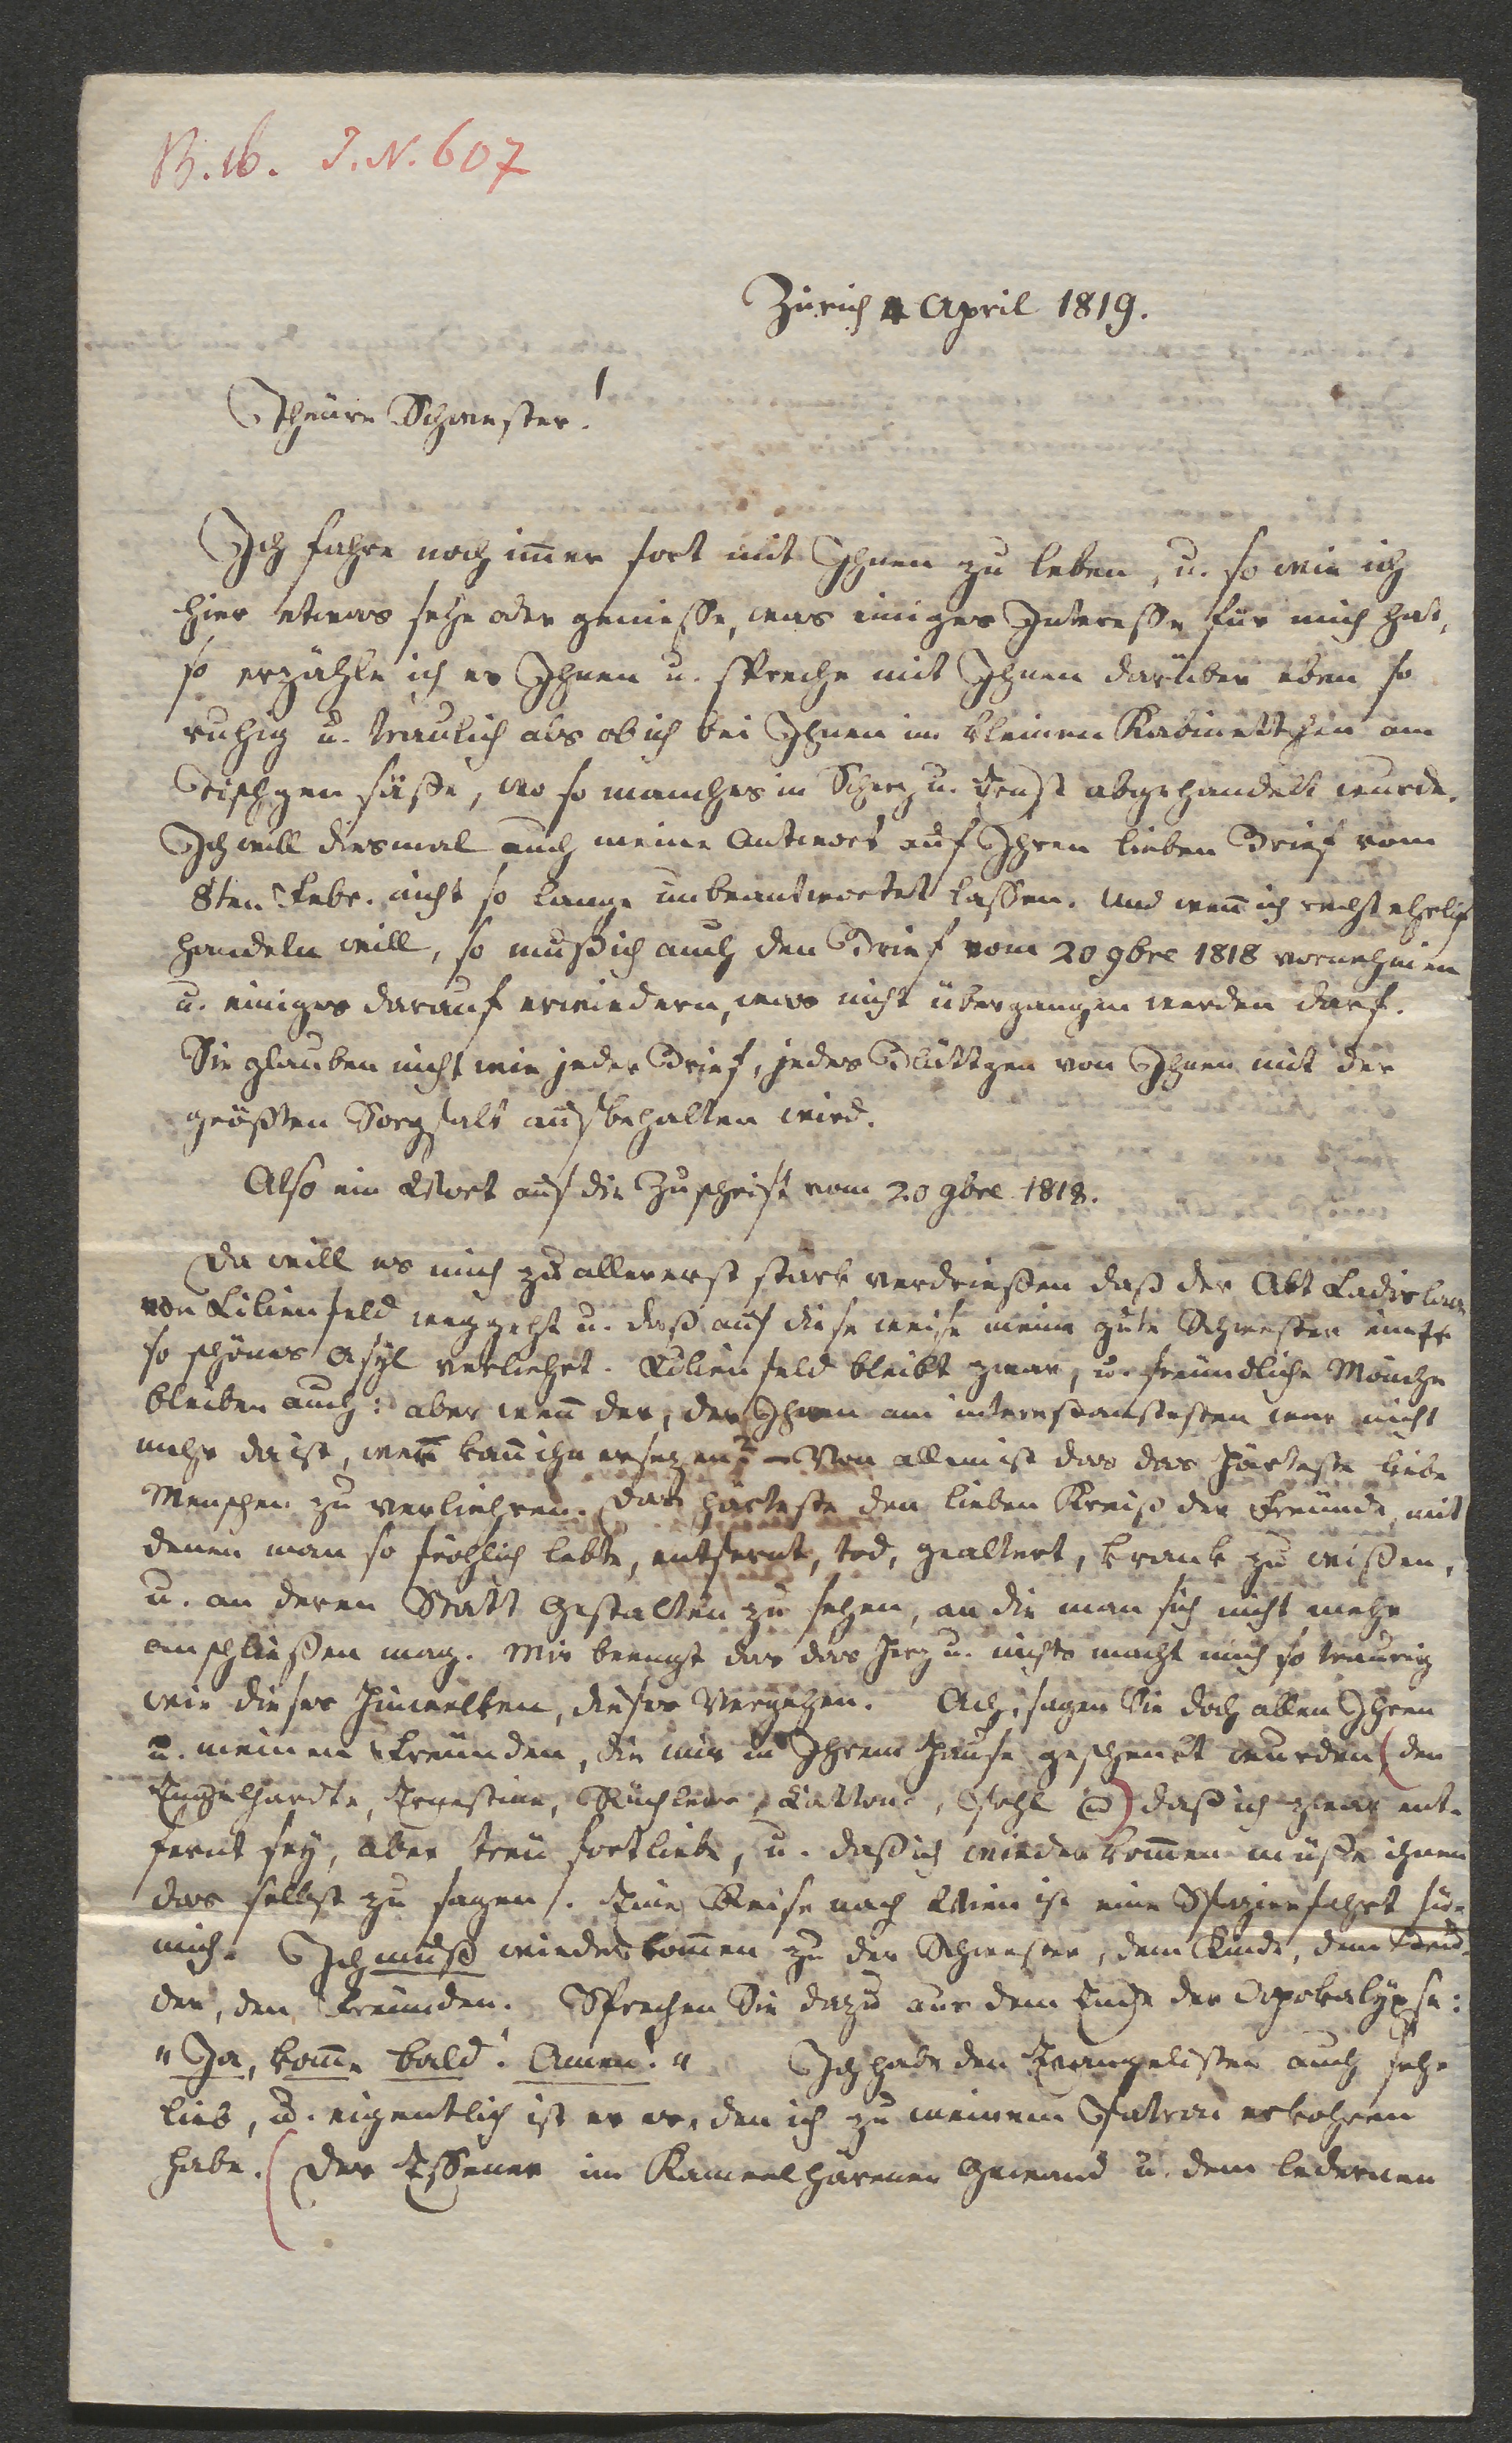 B. 16. I. N. 607
Zürich 4 April 1819.
Theüre Schwester!
Ich fahre noch im̅er fort mit Ihnen zu leben, u. so wie ich
hier etwas sehe oder geniesse, was einiges Interesse für mich hat,
so erzähle ich es Ihnen u. spreche mit Ihnen darüber eben so
ruhig u. traulich als ob ich bei Ihnen im kleinen Kabinettchen am
Tischgen säße, wo so manches in Scherz u. Ernst abgehandelt wurde.
Ich will diesmal auch meine Antwort auf Ihren lieben Brief vom
8ten Febr. nicht so lange unbeantwortet lassen. Und wen̅ ich recht ehrlich
handeln will, so muß ich auch den Brief vom 20 9bre 1818 vornehmen
u. einiges darauf erwiedern, was nicht übergangen werden darf.
Sie glauben nicht wie jeder Brief, jedes Blättgen von Ihnen mit der
größten Sorgfalt aufbehalten wird.
Also ein Wort auf die Zuschrift vom 20 9bre 1818.
Da will es mich zu allererst stark verdrießen daß der Abt Ladislaus
von Lilienfeld weggeht u. daß auf diese weise meine gute Schwester ein
so schönes Asyl verliehrt. Lilienfeld bleibt zwar, u. freündliche Mönche
bleiben auch: aber wen̅ der, der Ihnen am interessantesten war nicht
mehr da ist, wer kan̅ ihn ersezen? – Von allem ist das das Härteste liebe
Menschen zu verliehren. Das härteste den lieben Kreis der Freünde, mit
denen man so fröhlich lebte, entfernt, tod, gealtert, krank zu wißen,
u. an deren Statt Gestalten zu sehen, an die man sich nicht mehr
anschließen mag. Mir beengt das das Herz u. nichts macht mich so traurig
wie dieses Hinwelken, dieses Vergehen. Ach, sagen Sie doch allen Ihren
u. meinen Freünden, die mir in Ihrem Hause geschenkt wurden (den
Engelhardts, Ernestine, Büchlers, , Pohl ) daß ich zwar ent-
fernt sey, aber treü fortliebe, u. daß ich wiederkom̅en müße ihnen
das selbst zu sagen. Eine Reise nach Wien ist eine Spazierfahrt für
mich. Ich muß wiederkom̅en zu der Schwester, dem Kinde, dem Bru-
der, den Freünden. Sprechen Sie dazu aus dem Ende der Apokalypse:
"Ja, kom̅e bald! Amen!" Ich habe den Evangelisten auch sehr
lieb, u. eigentlich ist er es, den ich zu meinem Patron erkohren
habe. (Der Essener im Kameelhärenen Gewand u. dem ledernen